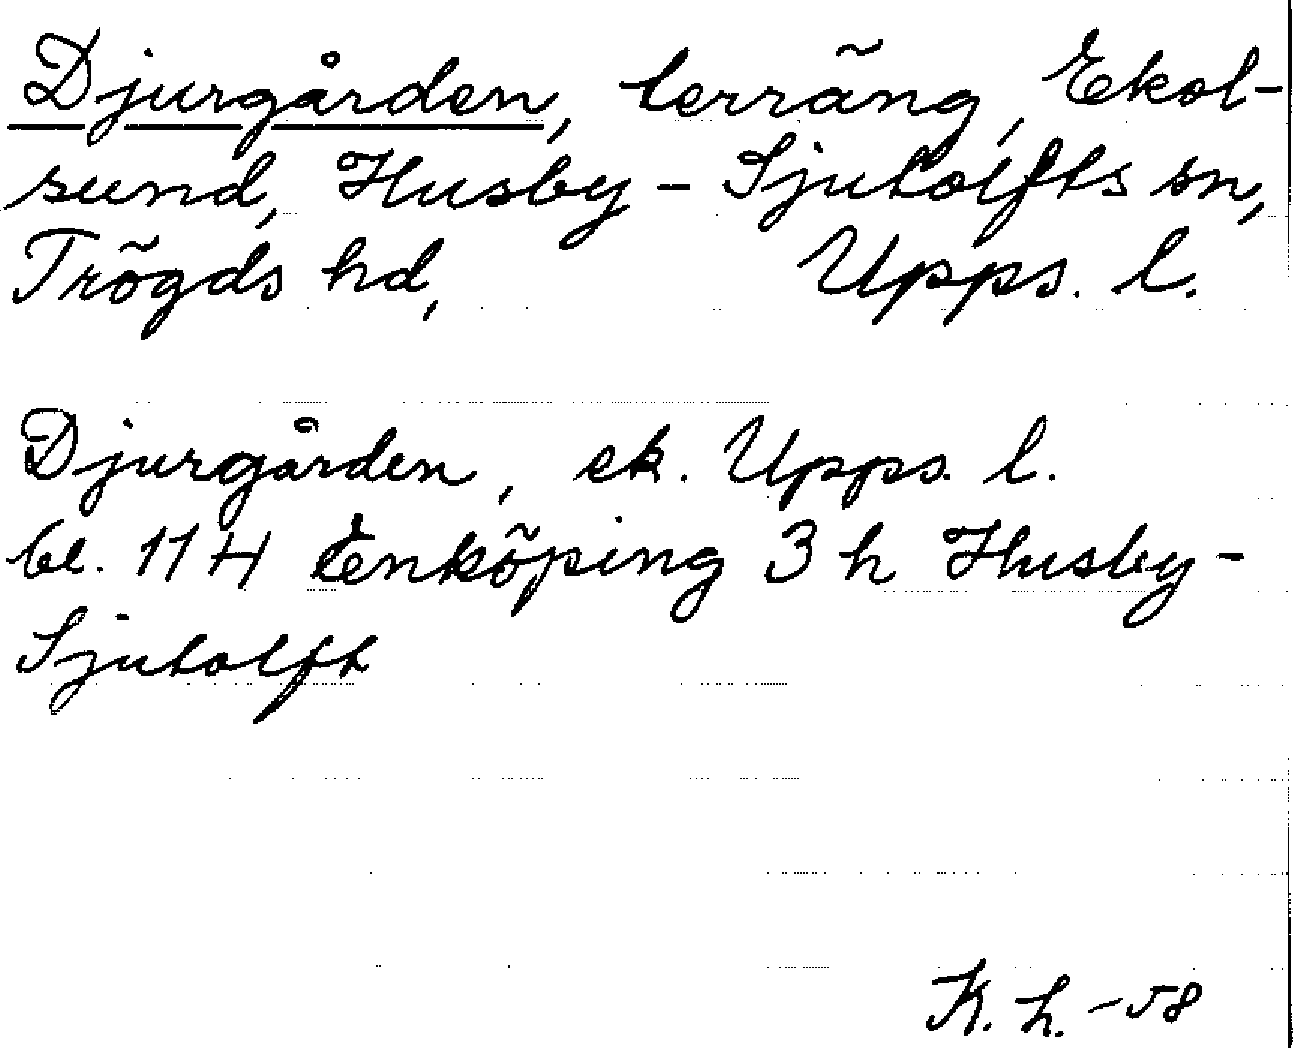 Djurgården, terräng, Ekol-
sund, Husby-Sjutolfts sn,
Trögds hd, Upps. l.
Djurgården, ek. Upps. l.
bl. 11 H Enköping 3 h Husby-
Sjutolft
K. L. -58